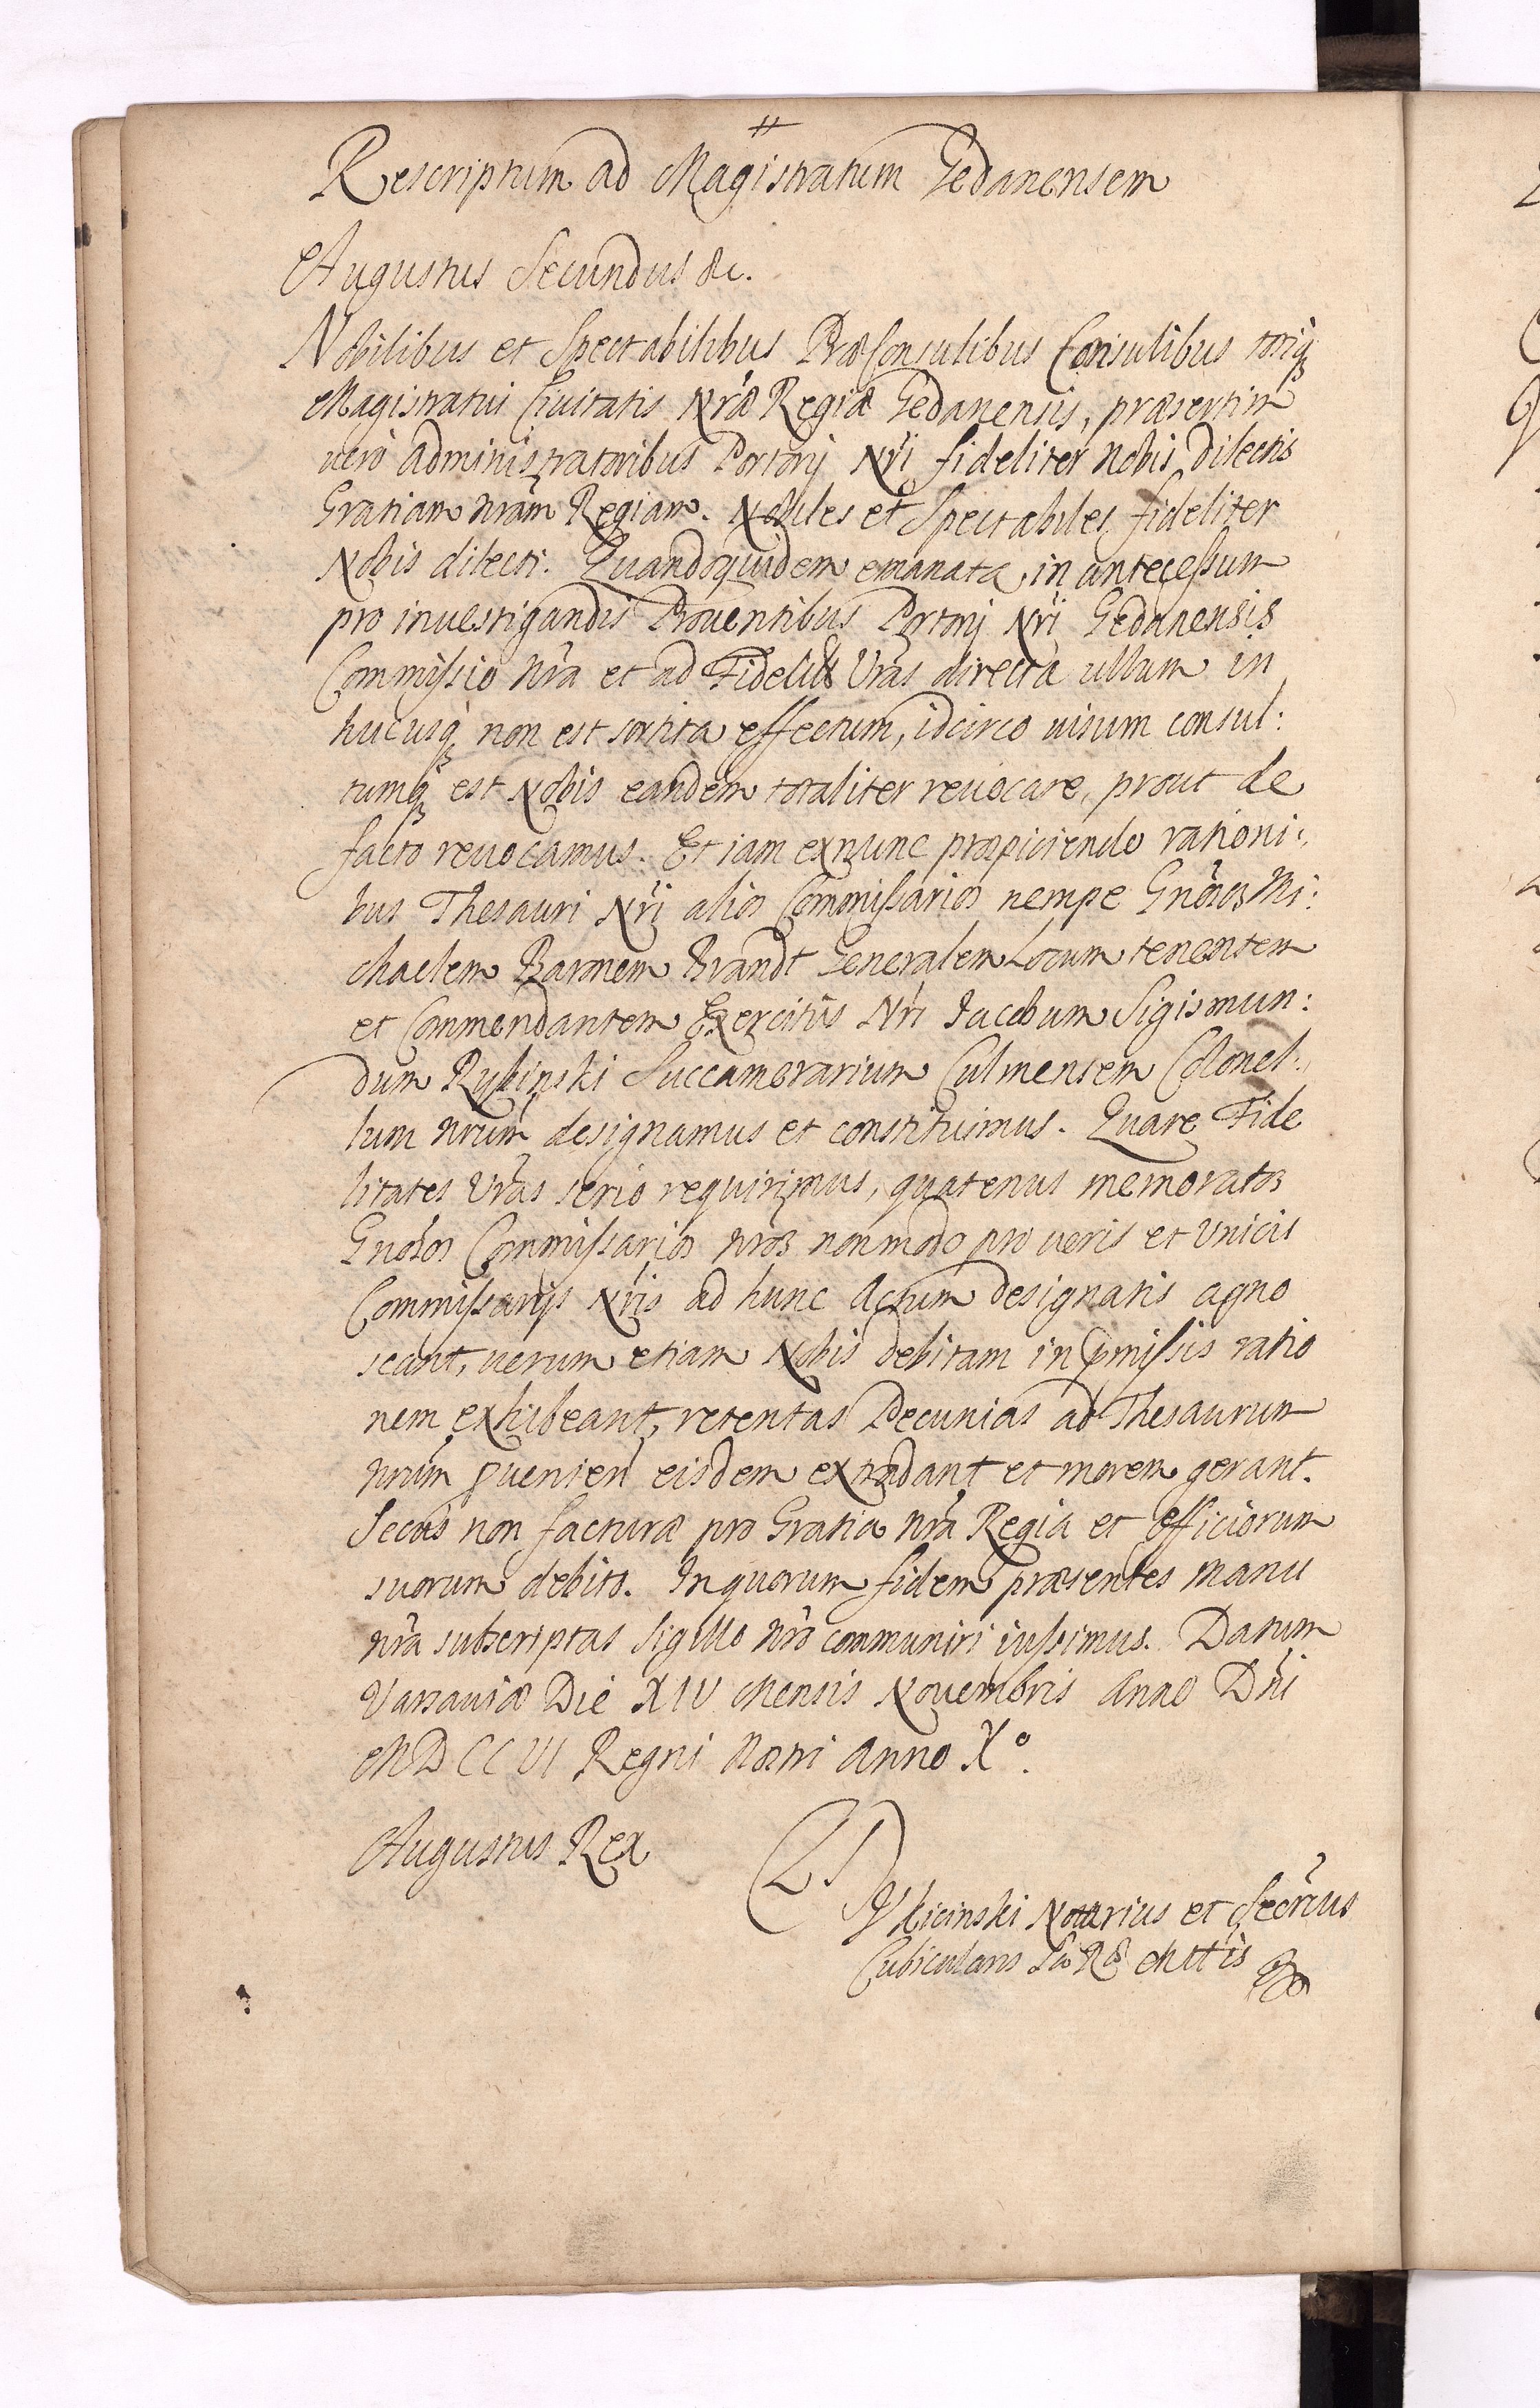 Rescriptum ad Magistratum Gedanensem
Augustus Secundus &c.
Nobilibus et Spectabilibus PræConsulibus Consulibus totiq
Magistratui Ciuitatis Nræ Regiæ Gedanensis, præsertim
uero Administratoribus Portorij Nri fideliter Nobis dilectis
Gratiam nram Regiam. Nobiles et Spectabiles fideliter
Nobis dilecti. Quandoquidem emanata in antecessum
pro inuestigandis Prouentibus Portorij Nri Gedanensis
Commissio Nra et ad Fidelits Vras directa ullum in
hucusq non est sortita effectum, idcirco uisum consul:
tumq est Nobis eandem totaliter reuocare, prout de
facto reuocamus. Et iam exnunc prospiciendo rationi:
bus Thesauri Nri alios Commissarios nempe Gnosos Mi:
chaelem Baronem Brandt Generalem Locum tenentem
et Commendantem Exercitus Nri Jacobum Sigismun:
dum Rybinski Succamerarium Culmensem Colonel:
lum nrum designamus et constituimus. Quare Fide
litates Vras serio requirimus, quatenus memoratos
Gnosos Commissarios nros non modo pro ueris et Vnicis
Commissarijs Nris ad hunc Actum designatis agno
scant, uerum etiam Nobis debitam in pmissis ratio
nem exhibeant, retentas Pecunias ad Thesaurum
nrum puenien eisdem extradant et morem gerant.
Secus non facturæ pro Gratia nra Regia et officiorum
suorum debito. In quorum fidem præsentes manu
nra subscriptas Sigillo nro communiri iussimus. Datum
Varsauiæ Die XIV Mensis Nouembris Anno Dni
MDCCVI Regni Nostri Anno Xo.
Augustus Rex
LS
Notarius et Secrius
Cubicularis Sæ Ræ Mttis